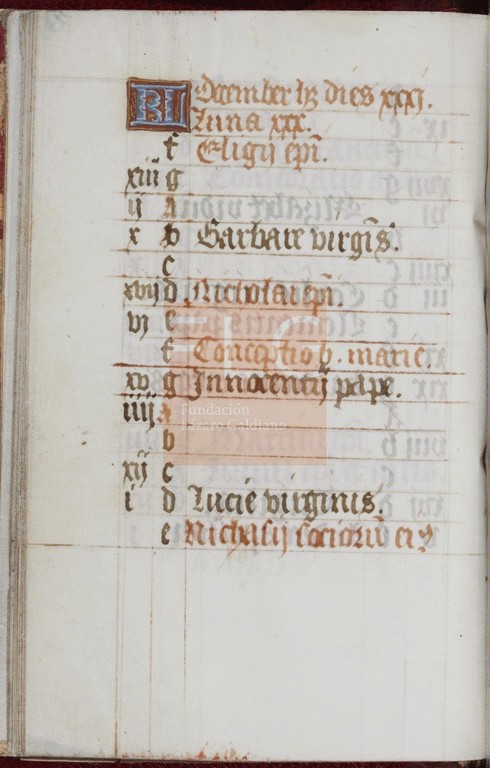 KL December hz dies xxxj.
Luna xxx.
f Eligij epi.
xiij g
ij A
x b Barbare virgis.
c
xviij d Nicholai epi.
vj e
f Conceptio b. marie.
xv g Innocentij pape.
iiij A
b
xij c
i d Lucie virginis.
e Nichasij socioru eiꝰ
FLG
Fundación
Lázaro Galdiano